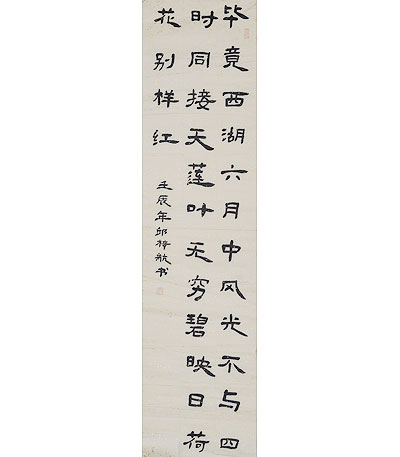 毕竟西湖六月中风光不与四
时同接天莲叶无穷碧映日荷
花别样红
壬辰年邱梓航书